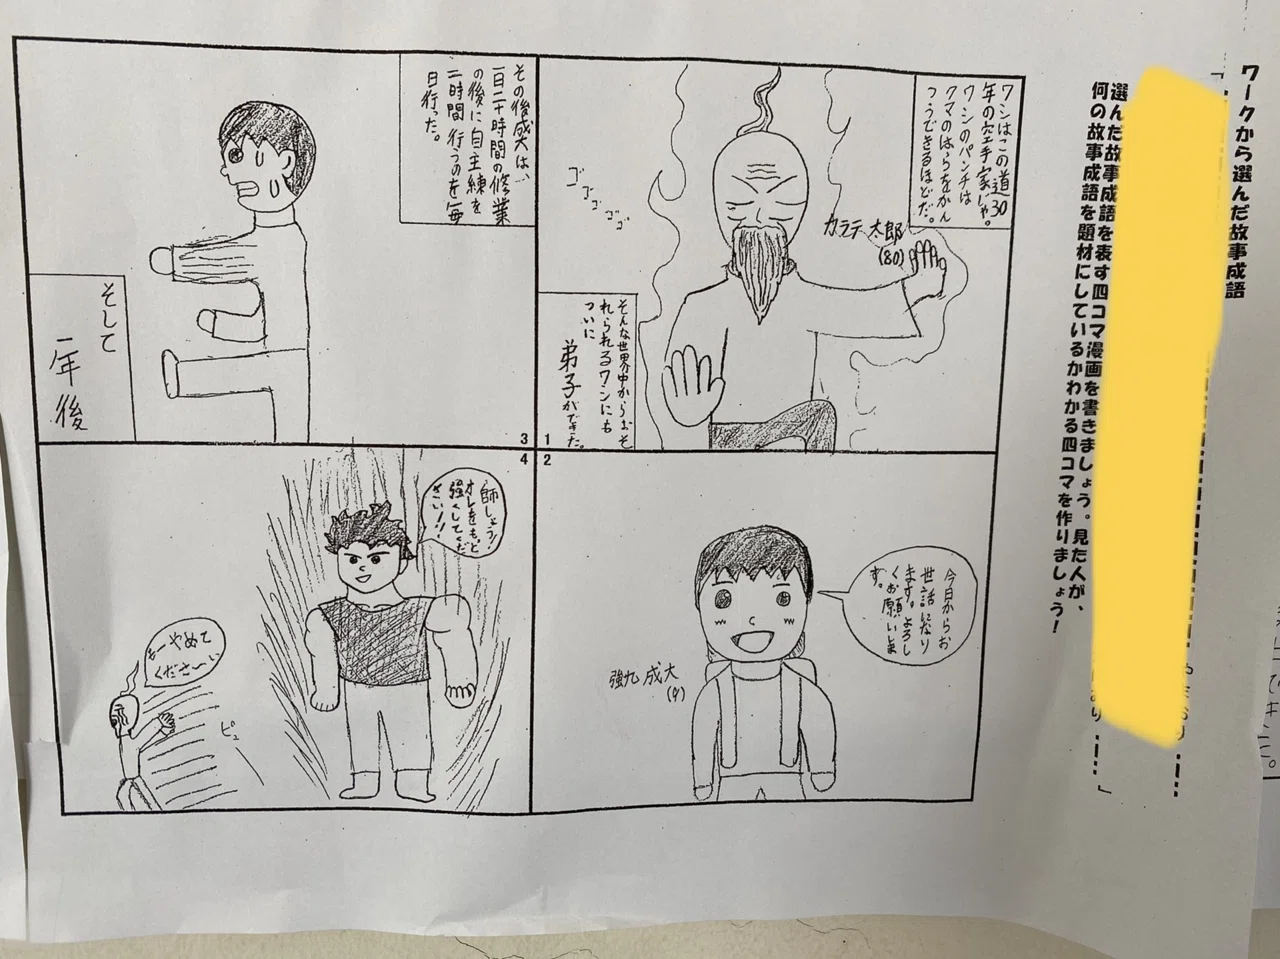 ワークから選んだ故事成語
選んだ故事成語を表す四コマ漫画を書きましょう。見た人が、
何の故事成語を題材にしているかわかる四コマを作りましょう！
1
ワシはこの道30
年の空手家じゃ。
ワシのパンチは
クマのはらをかん
つうできるほどだ。
カラテ太郎
(80)
ゴゴゴゴゴ
そんな世界中からおそ
れられるワシにも
ついに
弟子ができた。
2
今日からお
世話になり
ます。よろし
くお願いしま
す。
強九 成大
(9)
3
その後成大は、
一日二十時間の修業
の後に自主練を
二時間行うのを毎
日行った。
そして
一年後
4
師しょう！
オレをもっと
強くしてくだ
さい!!
もーやめて
くださ〜い
ピュー